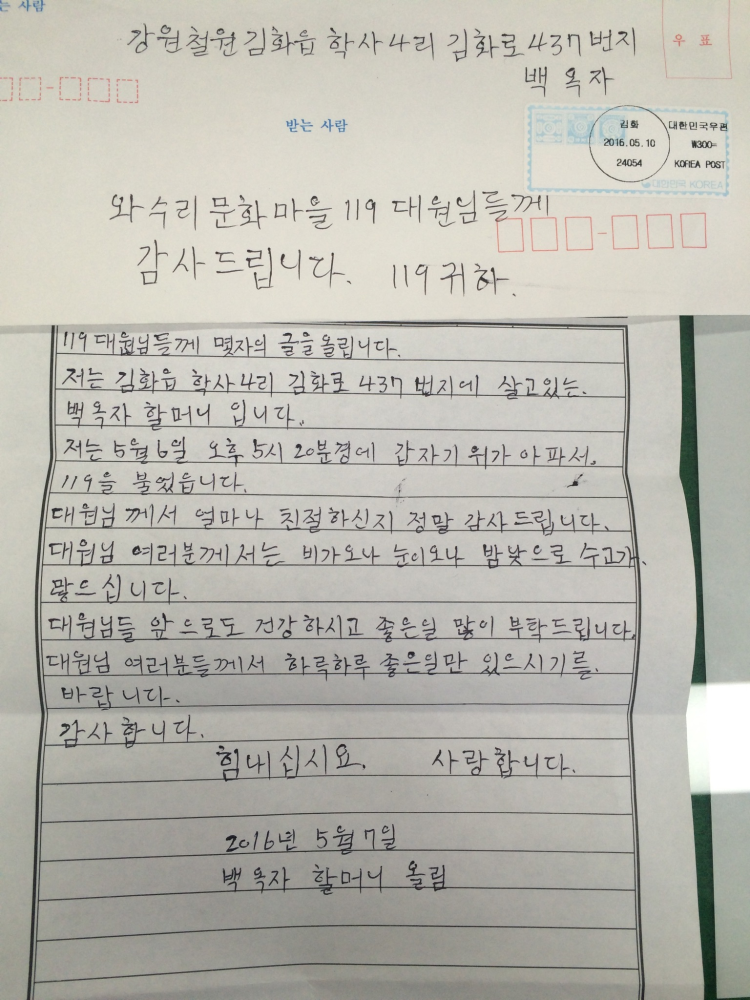 는 사람
강원철원김화읍 학사4리 김화로 437번지
백옥자
우 표
받는 사람
김화
2016.05.10
24054
대한민국우편
₩300=
KOREA POST
대한민국 KOREA
와수리 문화마을 119 대원님들께
감사드립니다. 119 귀하.
119대원님들께 몇자의 글을올립니다.
저는 김화읍 학사4리 김화로 437 번지에 살고있는.
백옥자 할머니 입니다.
저는 5월6일 오후 5시 20분경에 갑자기 위가 아파서.
119을 불렀읍니다.
대원님 께서 얼마나 친절하신지 정말 감사드립니다.
대원님 여러분께서는 비가오나 눈이오나 밤낮으로 수고가.
많으십니다.
대원님들 앞으로도 건강하시고 좋은일 많이 부탁드립니다.
대원님 여러분들께서 하루하루 좋은일만 있으시기를.
바랍니다.
감사합니다.
힘내십시요. 사랑합니다.
2016년 5월 7일
백옥자 할머니 올림